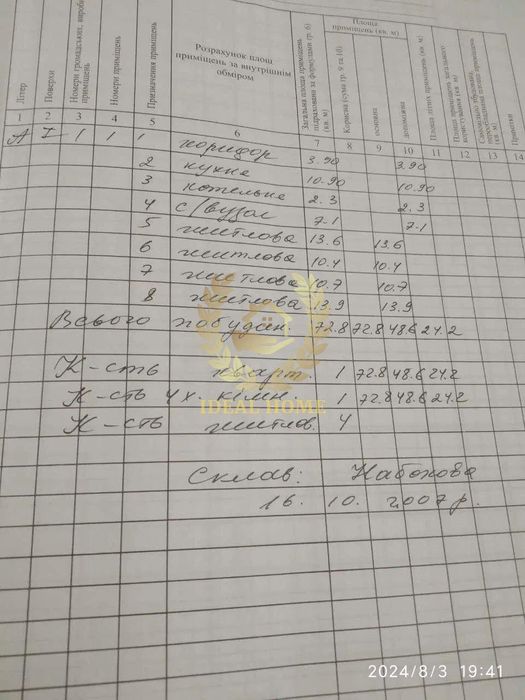 Літер
Поверхи
Номери громадських, вироб
приміщень
Номери приміщень
Призначення приміщень
Розрахунок площ
приміщень за внутрішнім
обміром
Загальна площа приміщень
(кв. м)
Площа
приміщень (кв. м)
Корисна (сума гр. 9 та 10)
основна
допоміжна
Площа літніх приміщень (кв. м)
Площа приміщень загального
користування (кв. м)
Примітки
1 2 3 4 5 6 7 8 9 10 11 12 13 14
А I 1 1 1 коридор 3.90 3.90
2 кухня 10.90 10.90
3 котельня 2.3 2.3
4 с/вузол 7.1 7.1
5 житлова 13.6 13.6
6 житлова 10.4 10.4
7 житлова 10.7 10.7
8 житлова 13.9 13.9
Всього по будин. 72.8 72.8 48.6 24.2
К-сть кварт. 1 72.8 48.6 24.2
К-сть 4х кімн. 1 72.8 48.6 24.2
К-сть житлов. 4
IDEAL HOME
Склав: Набокова
16. 10. 2007 р.
2024/8/3 19:41